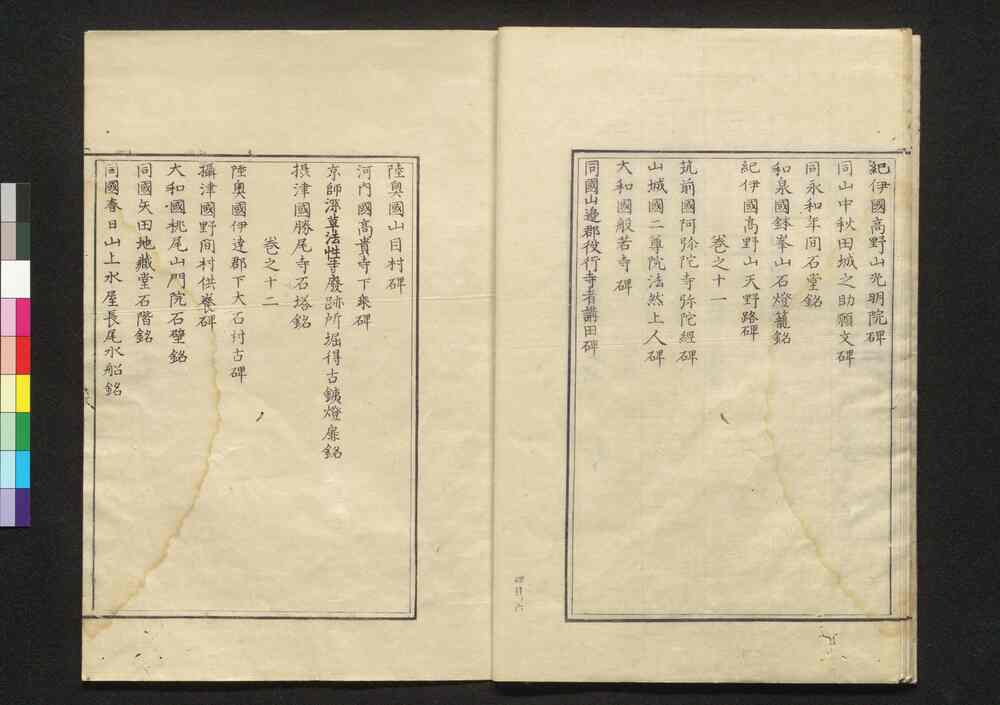 紀伊國高野山光明院碑
同山中秋田城之助願文碑
同永和年间石堂銘
和泉國鉢峯山石燈籠銘
紀伊國高野山天野路碑
巻之十一
筑前國阿弥陀寺弥陀經碑
山城國二尊院法然上人碑
大和國般若寺碑
同國山邉郡役行寺者講田碑
陸奥國山目村碑
河内國高貴寺下乘碑
京師深草法性寺廢跡所堀得古鐵燈扉銘
摂津國勝尾寺石塔銘
巻之十二
陸奥國伊達郡下大石村古碑
攝津國野间村供養碑
大和國桃尾山門院石壁銘
同國矢田地藏堂石階銘
同國春日山上水屋長尾水船銘